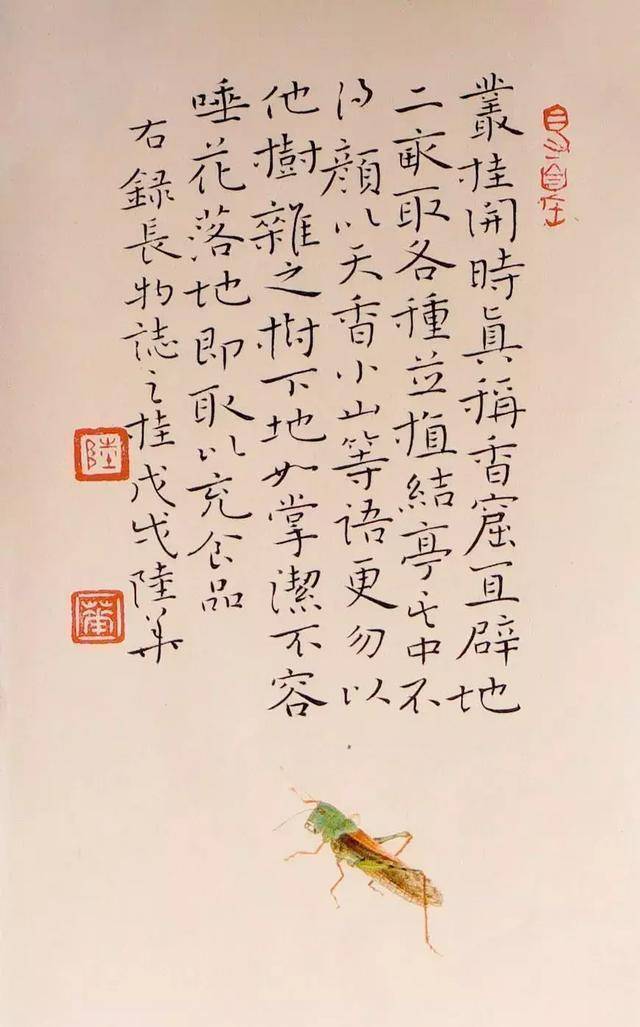 叢桂開時眞稱香窟宜辟地
二畝取各種並植結亭其中不
得顏以天香小山等語更勿以
他樹雜之樹下地如掌潔不容
唾花落地即取以充食品
右錄長物誌之桂戊戌陸華
陸